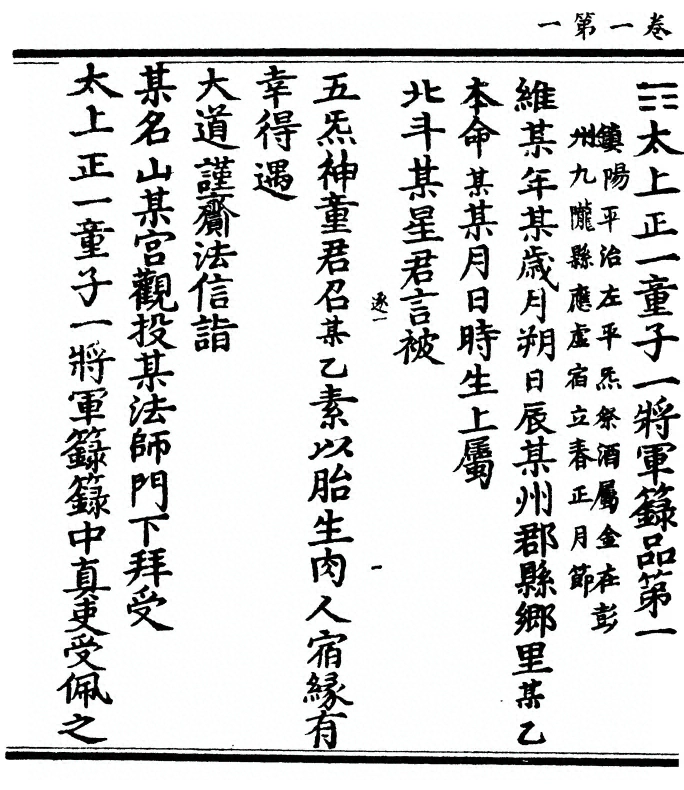 卷一第一
☶太上正一童子一將軍籙品第一
鎮陽平治左平炁祭酒屬金在彭
州九隴縣應虛宿立春正月節
維某年某歲月朔日辰某州郡縣鄉里某乙
本命某某月日時生上屬
北斗某星君言被
逐一
五炁神童君召某乙素以胎生肉人宿緣有
幸得遇
大道謹齎法信詣
某名山某宮觀投某法師門下拜受
太上正一童子一將軍籙籙中真吏受佩之